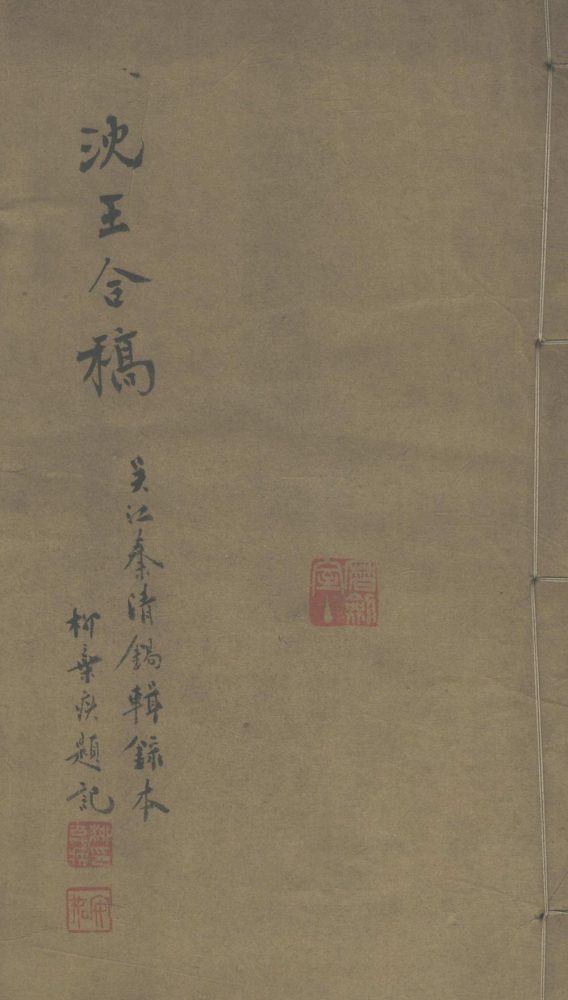 沈王合稿
吴江秦清錫輯錄本
柳棄疾題記